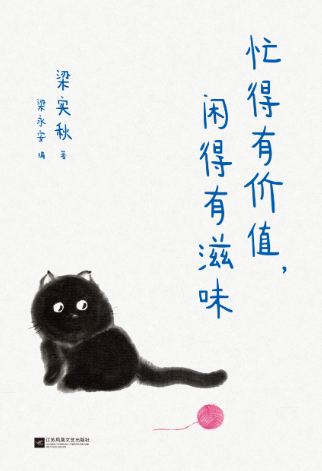 忙得有价值,
闲得有滋味
梁实秋 著
梁永安 编
江苏凤凰文艺出版社